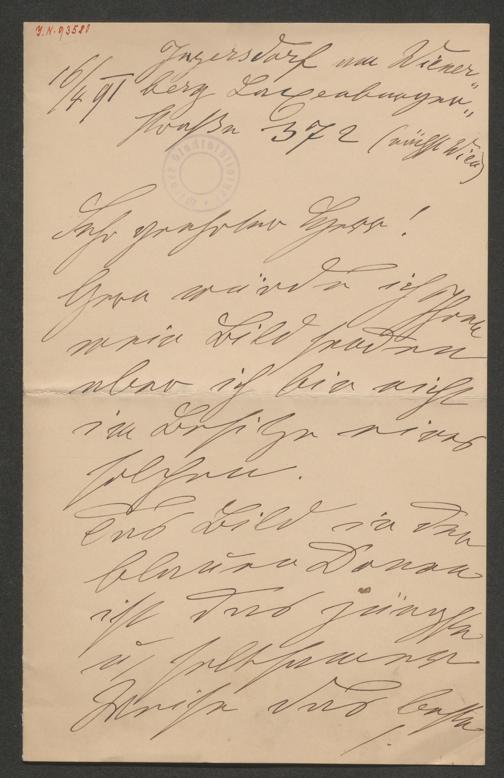 J.N. 93580
16/4 91
Inzersdorf am Wiener-
berg Laxenburger-
straße 372 (nächst Wien)
Wiener Stadtbibliothek
Sehr geehrter Herr!
Gern würde ich Ihnen
mein Bild senden
aber ich bin nicht
im Besitze eines
solchen.
Das Bild in der
blauen Donau
ist das jüngste
u. seltsamer
Weise das beste
!